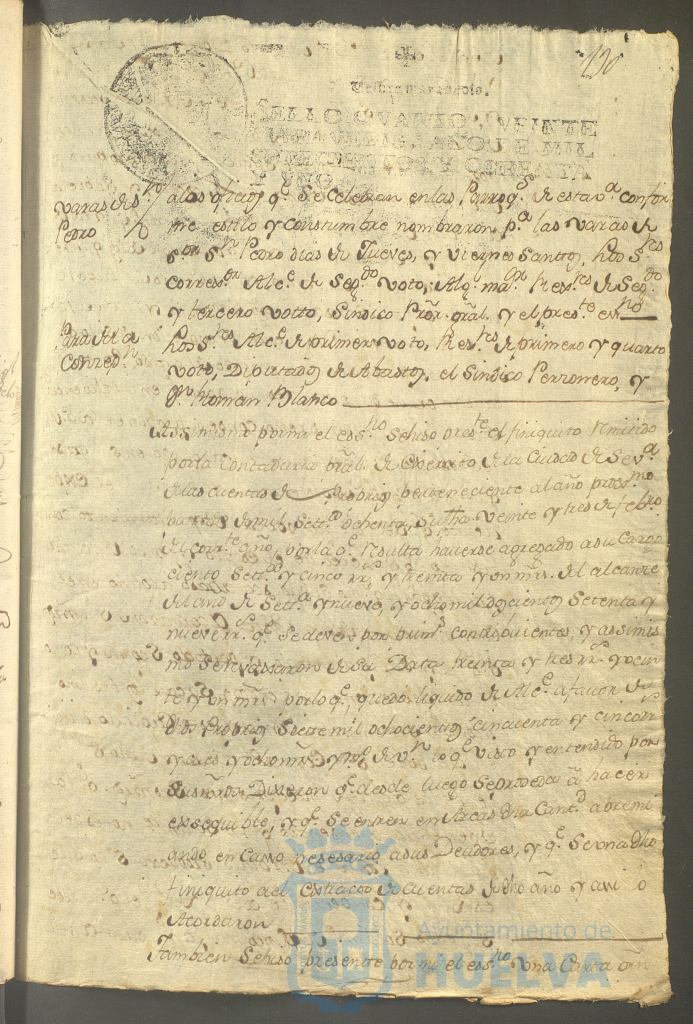 190
Veinte maravedis.
SELLO QVARTO, VEINTE
MARAVEDIS, AÑO DE MIL
SETECIENTOS Y OCHENTA
Y VNO.
Varas de Sn. Pedro
a los oficios qe. se celebran en las Parroqs. de esta va. confor
me estilo y construmbre nombraron pa. las varas de
Sor. Sn. Pedro dias de Jueves, y Viernes Santos, hos Sres.
Corressor. Alce. de Segdo. voto, Alg. mayr. Rexres. de Segdo.
y tercero votto, Sindico Pror. gral. y el preste. esno.
Para de la Conzepn.
hos Sres. Alce. de primer voto, Rexres. de primero y quarto
voto, Diputados de Abastos, el Sindico Perzonero, y
Dn. Román Blanco
Assimismo por mi el essno. se hiso preste. el finiquito remitido
por la Contaduria Pral. de Exercito de la Ciudad de Seva.
de las cuentas de propios perteneciente al año proxmo.
passado de mil settos. ochenta, su fha. veinte y tres de febro.
de corrte. año, por la qe. resulta haverse agregado a su cargo
ciento settta. y cinco rrs. y treinta y un mrs. del alcanze
del año de Settta. y nueve, y ocho mil doscientos setenta y
nueve rrs. qe. se deven por
contribuientes, y assimis
mo se revassaron de su Data treinta y tres rrs. y vein
te y un mrs. por lo qe. quedó líquido de Alce. a favor de
dhos Propios siete mil ochocientos cincuenta y cinco rrs.
y dies y ocho mrs.
de vn. lo qe. visto y entendido por
sus mrds. Dixeron qe. desde luego se proceda á hacer
exsequible, y qe. se entren en Arcas dha Cantd. apremi
ando en casso nesesario a sus Deudores, y qe. se una dho
finiquito a el extracto de cuentas de dho año y assi lo
Acordaron
Tambien se hiso presente por mi el essno. una Carta
Ayuntamiento de
HUELVA